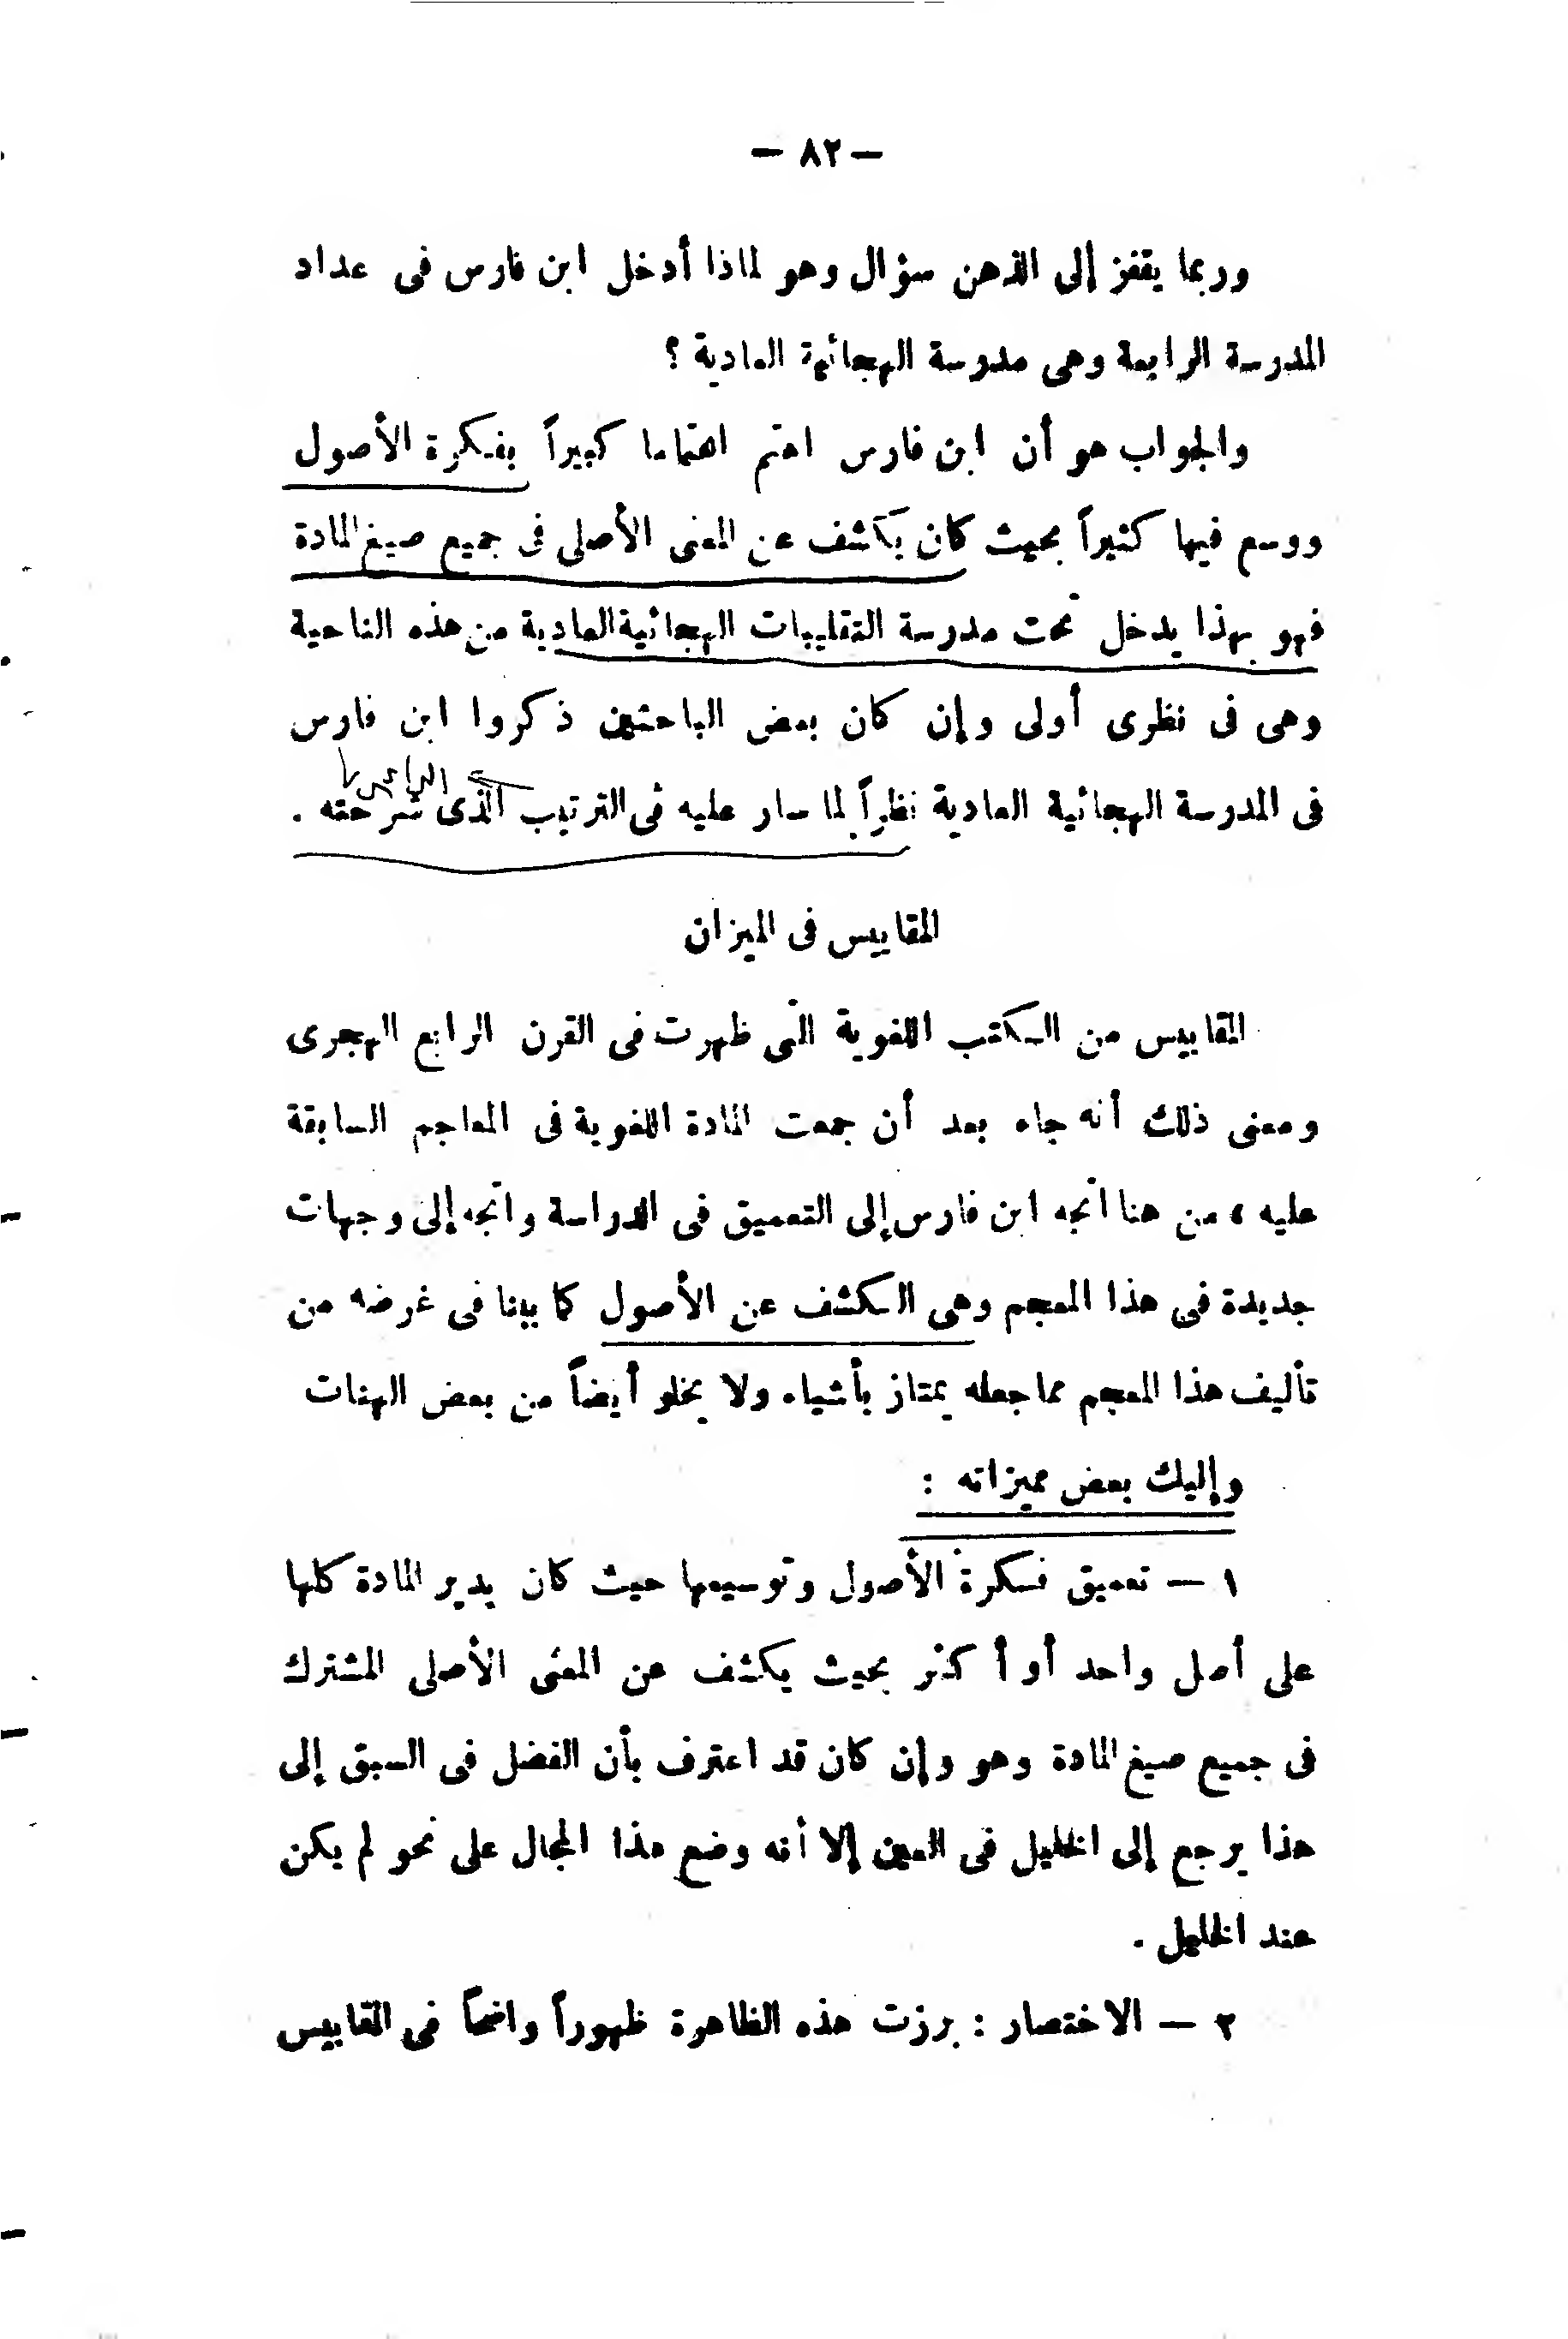 — ٨٢ —
وربما يقفز إلى الذهن سؤال وهو لماذا أدخل ابن فارس فى عداد
المدرسة الرابعة وهى مدرسة الهجائية العادية ؟
والجواب هو أن ابن فارس اهتم اهتماما كبيراً بفكرة الأصول
ووسع فيها كثيراً بحيث كان يكشف عن المعنى الأصلى فى جميع صيغ المادة
فهو بهذا يدخل تحت مدرسة التقليبات الهجائية العادية من هذه الناحية
وهى فى نظرى أولى وإن كان بعض الباحثين ذكروا ابن فارس
فى المدرسة الهجائية العادية نظراً لما سار عليه فى الترتيب الذى شرحته .
المقاييس فى الميزان
المقاييس من الكتب اللغوية التى ظهرت فى القرن الرابع الهجرى
ومعنى ذلك أنه جاء بعد أن جمعت المادة اللغوية فى المعاجم السابقة
عليه ، من هنا اتجه ابن فارس إلى التعميق فى الدراسة واتجه إلى وجهات
جديدة فى هذا المعجم وهى الكشف عن الأصول كما بينا فى غرضه من
تأليف هذا المعجم مما جعله يمتاز بأشياء ولا يخلو أيضاً من بعض الهنات
وإليك بعض مميزاته :
١ — تعميق فكرة الأصول وتوسيعها حيث كان يدير المادة كلها
على أصل واحد أو أكثر بحيث يكشف عن المعنى الأصلى المشترك
فى جميع صيغ المادة وهو وإن كان قد اعترف بأن الفضل فى السبق إلى
هذا يرجع إلى الخليل فى العين إلا أنه وضع هذا المجال على نحو لم يكن
عند الخليل .
٢ — الاختصار : برزت هذه الظاهرة ظهوراً واضحاً فى المقاييس